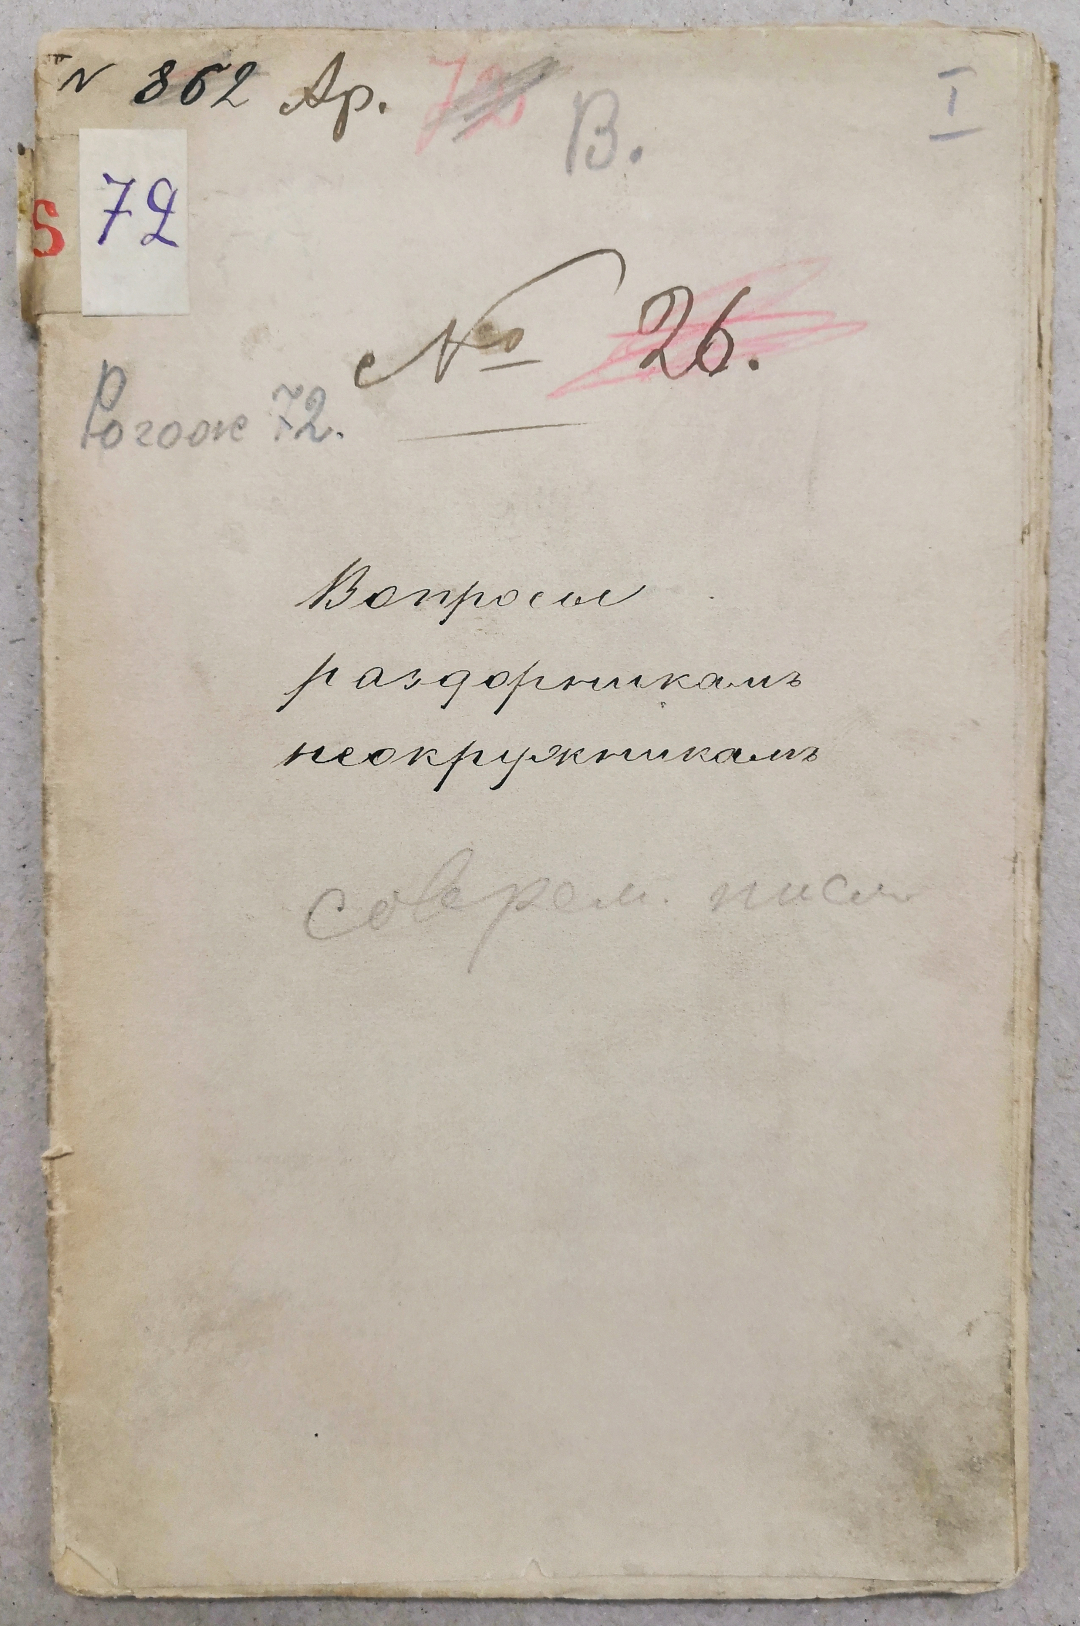 N 862 Ар. 72 В. I
S 72
№ 26.
Рогож 72.
Вопросы
раздорникамъ
неокружникамъ
соврем. письм